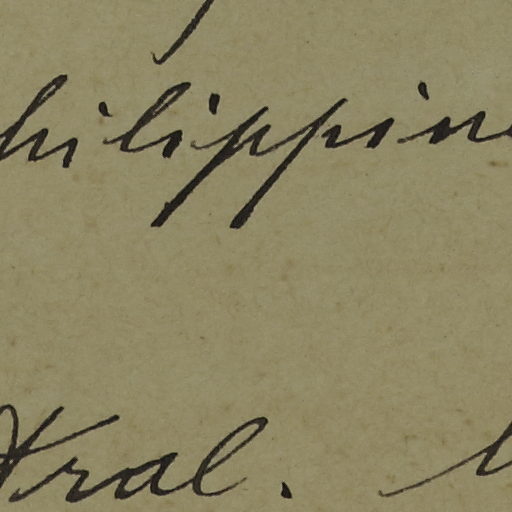 hilippine
Kral.